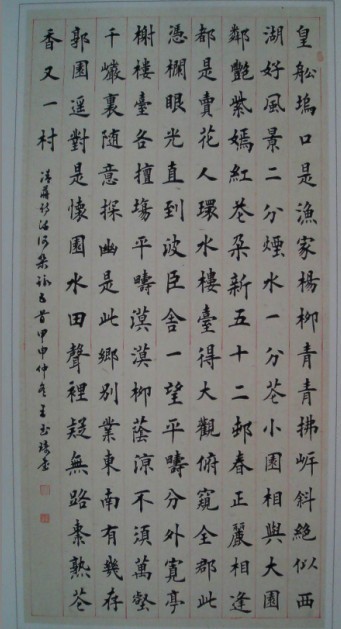 皇舩塢口是漁家楊柳青青拂岍斜絶似西
湖好風景二分煙水一分芲小園相與大園
鄰艷紫嫣紅芲朵新五十二邨春正麗相逢
都是賣花人環水樓臺得大觀俯窺全郡此
憑欄眼光直到波臣舍一望平疇分外寬亭
榭樓臺各擅塲平疇漠漠柳蔭涼不須萬壑
千巖裏随意探幽是此鄉别業東南有幾存
郭園遥對是懷園水田聲裡疑無路棗熟芲
香又一村
清蔣詩沽河雜詠五首甲申仲冬王玉書